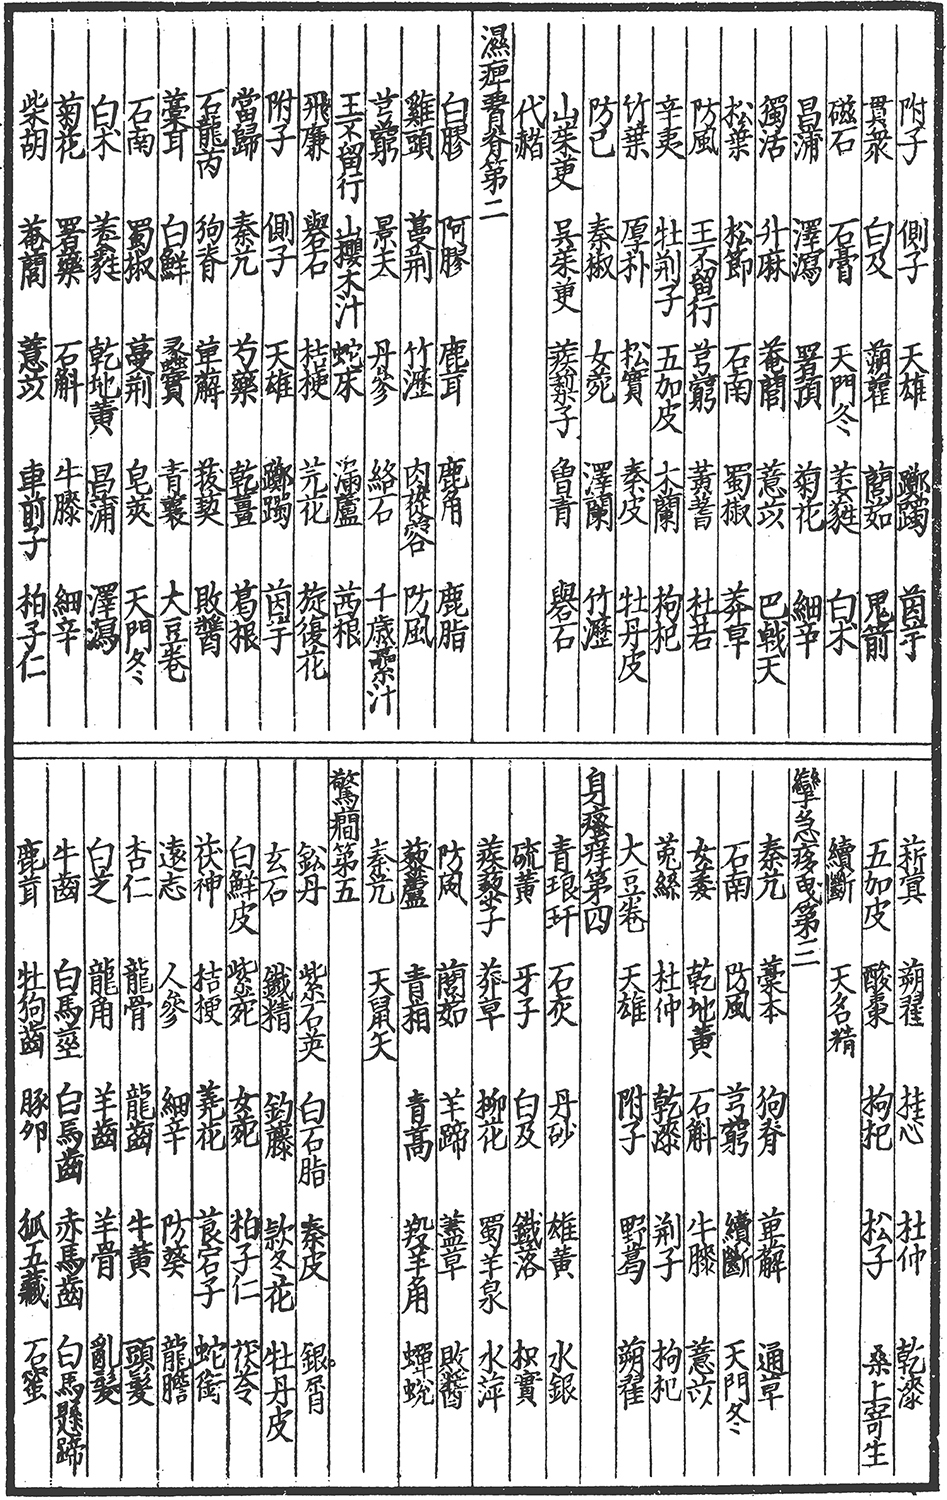 附子 側子 天雄 躑躅 茵芋
貫衆 白及 蒴藋 藘茹 鬼箭
磁石 石膏 天門冬 萎蕤 白朮
昌蒲 澤瀉 署預 菊花 細辛
獨活 升麻 菴䕡 薏苡 巴戟天
松葉 松節 石南 蜀椒 莽草
防風 王不留行 芎藭 黃耆 杜若
辛夷 牡荆子 五加皮 木蘭 枸杞
竹葉 厚朴 松實 秦皮 牡丹皮
防已 秦椒 女菀 澤蘭 竹瀝
山茱萸 吳茱萸 蒺䔧子 曾青 礜石
代赭
濕痺脊第二
白膠 阿膠 鹿茸 鹿角 鹿脂
雞頭 蔓荆 竹瀝 肉蓯容 防風
芎藭 景天 丹參 絡石 千歳虆汁
王不留行 山櫻木汁 蛇床 漏蘆 茜根
飛廉 礜石 桔梗 芫花 旋復花
附子 側子 天雄 躑躅 茵芋
當歸 秦艽 芍藥 乾薑 葛根
石龍芮 狗脊 萆解 菝葜 敗醬
葈耳 白鮮 蠡實 青蘘 大豆卷
石南 蜀椒 蔓荆 皂莢 天門冬
白朮 萎蕤 乾地黃 昌蒲 澤瀉
菊花 署藥 石斛 牛膝 細辛
柴胡 菴䕡 薏苡 車前子 柏子仁
菥蓂 蒴藋 桂心 杜仲 乾漆
五加皮 酸棗 枸杞 松子 桑上寄生
續斷 天名精
攣急疼曳第三
秦艽 藁本 狗脊 萆解 通草
石南 防風 芎藭 續斷 天門冬
女萎 乾地黃 石斛 牛膝 薏苡
菟絲 杜仲 乾漆 荆子 枸杞
大豆卷 天雄 附子 野葛 蒴藋
身瘙痒第四
青琅玕 石灰 丹砂 雄黃 水銀
硫黃 牙子 白及 鐵落 枳實
蒺藜子 莽草 柳花 蜀羊泉 水萍
防風 藘茹 羊蹄 藎草 敗醬
藜蘆 青相 青蒿 羖羊角 蟬蛻
秦艽 天鼠矢
驚癇第五
鈆丹 紫石英 白石脂 秦皮 銀屑
玄石 鐵精 釣藤 款冬花 牡丹皮
白鮮皮 紫菀 女菀 柏子仁 茯苓
茯神 桔梗 蕘花 莨宕子 蛇銜
遠志 人參 細辛 防葵 龍膽
杏仁 龍骨 龍齒 牛黃 頭髮
白芝 龍角 羊齒 羊骨 亂髮
牛齒 白馬莖 白馬齒 赤馬齒 白馬懸蹄
鹿茸 牡狗齒 豚卵 狐五藏 石蜜